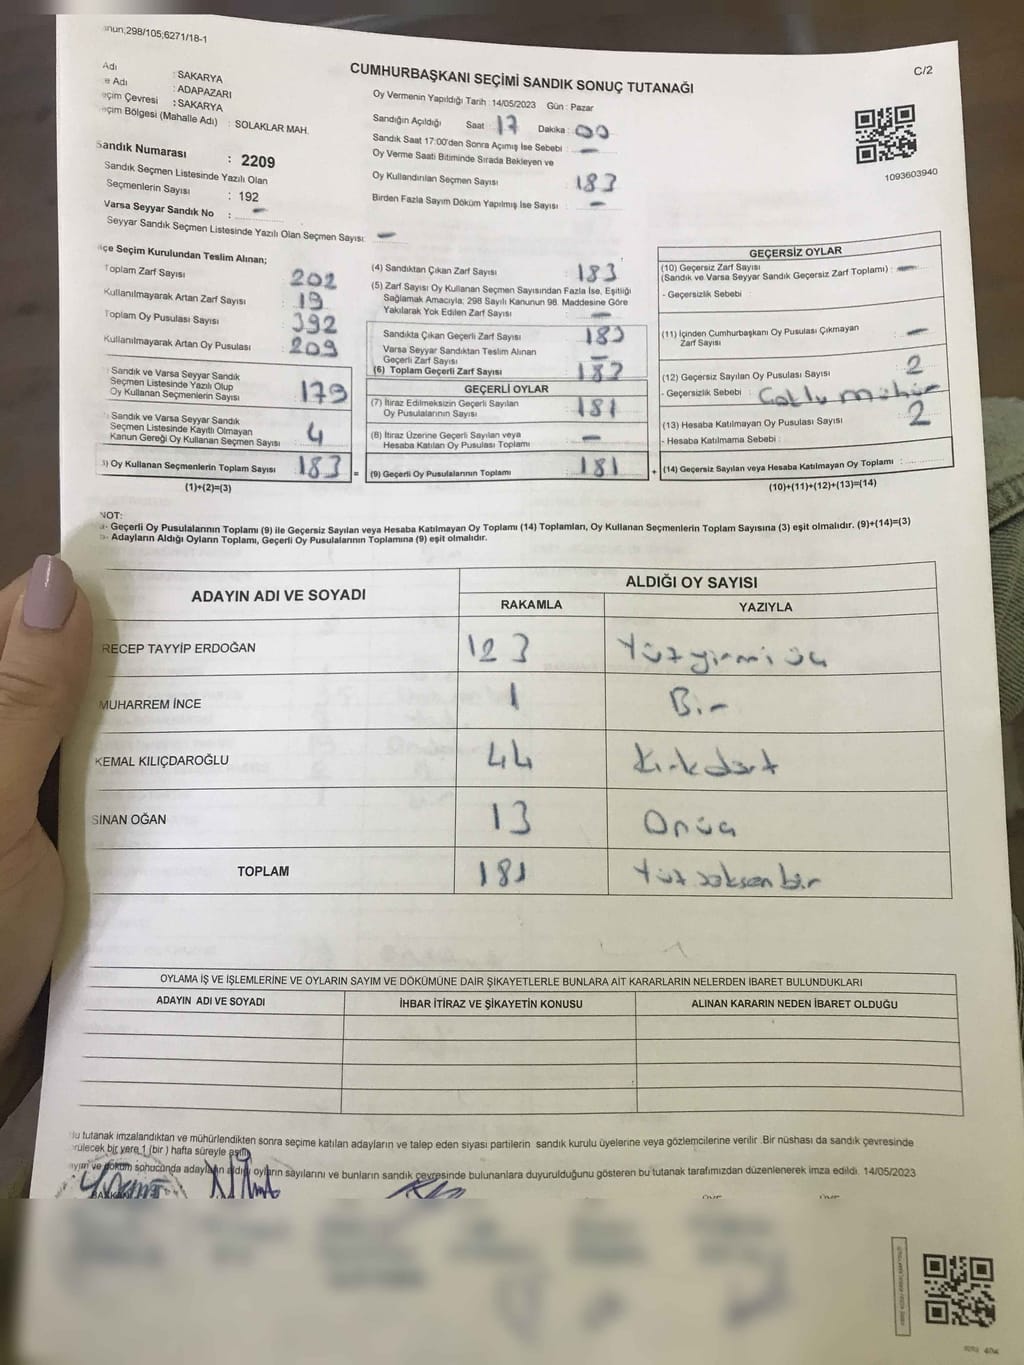 298/105;6271/18-1
C/2
CUMHURBAŞKANI SEÇİMİ SANDIK SONUÇ TUTANAĞI
Adı : SAKARYA
Adı : ADAPAZARI
Çevresi : SAKARYA
Bölgesi (Mahalle Adı) : SOLAKLAR MAH.
Oy Vermenin Yapıldığı Tarih : 14/05/2023 Gün : Pazar
Sandığın Açıldığı Saat 17 Dakika : 00
Sandık Saat 17:00'den Sonra Açımış İse Sebebi : -
Oy Verme Saati Bitiminde Sırada Bekleyen ve
Oy Kullandırılan Seçmen Sayısı 183
Birden Fazla Sayım Döküm Yapılmış İse Sayısı : -
1093603940
Sandık Numarası : 2209
Sandık Seçmen Listesinde Yazılı Olan
Seçmenlerin Sayısı : 192
Varsa Seyyar Sandık No : -
Seyyar Sandık Seçmen Listesinde Yazılı Olan Seçmen Sayısı: -
Seçim Kurulundan Teslim Alınan;
Toplam Zarf Sayısı : 202
Kullanılmayarak Artan Zarf Sayısı : 19
Toplam Oy Pusulası Sayısı : 392
Kullanılmayarak Artan Oy Pusulası : 209
Sandık ve Varsa Seyyar Sandık
Seçmen Listesinde Yazılı Olup
Oy Kullanan Seçmenlerin Sayısı : 179
Sandık ve Varsa Seyyar Sandık
Seçmen Listesinde Kayıtlı Olmayan
Kanun Gereği Oy Kullanan Seçmen Sayısı : 4
) Oy Kullanan Seçmenlerin Toplam Sayısı : 183 =
(1)+(2)=(3)
(4) Sandıktan Çıkan Zarf Sayısı : 183
(5) Zarf Sayısı Oy Kullanan Seçmen Sayısından Fazla İse, Eşitliği
Sağlamak Amacıyla; 298 Sayılı Kanunun 98. Maddesine Göre
Yakılarak Yok Edilen Zarf Sayısı : -
Sandıkta Çıkan Geçerli Zarf Sayısı : 183
Varsa Seyyar Sandıktan Teslim Alınan
Geçerli Zarf Sayısı : -
(6) Toplam Geçerli Zarf Sayısı : 183
GEÇERLİ OYLAR
(7) İtiraz Edilmeksizin Geçerli Sayılan
Oy Pusulalarının Sayısı : 181
(8) İtiraz Üzerine Geçerli Sayılan veya
Hesaba Katılan Oy Pusulası Toplamı : -
(9) Geçerli Oy Pusulalarının Toplamı : 181 +
GEÇERSİZ OYLAR
(10) Geçersiz Zarf Sayısı
(Sandık ve Varsa Seyyar Sandık Geçersiz Zarf Toplamı) : -
- Geçersizlik Sebebi :
(11) İçinden Cumhurbaşkanı Oy Pusulası Çıkmayan
Zarf Sayısı : -
(12) Geçersiz Sayılan Oy Pusulası Sayısı : 2
- Geçersizlik Sebebi : Çoklu mühür
(13) Hesaba Katılmayan Oy Pusulası Sayısı : 2
- Hesaba Katılmama Sebebi :
(14) Geçersiz Sayılan veya Hesaba Katılmayan Oy Toplamı :
(10)+(11)+(12)+(13)=(14)
NOT:
a- Geçerli Oy Pusulalarının Toplamı (9) ile Geçersiz Sayılan veya Hesaba Katılmayan Oy Toplamı (14) Toplamları, Oy Kullanan Seçmenlerin Toplam Sayısına (3) eşit olmalıdır. (9)+(14)=(3)
b- Adayların Aldığı Oyların Toplamı, Geçerli Oy Pusulalarının Toplamına (9) eşit olmalıdır.
ADAYIN ADI VE SOYADI ALDIĞI OY SAYISI
RAKAMLA YAZIYLA
RECEP TAYYİP ERDOĞAN 123 Yüzyirmi üç
MUHARREM İNCE 1 Bir
KEMAL KILIÇDAROĞLU 44 Kırkdört
SİNAN OĞAN 13 Onüç
TOPLAM 181 Yüz seksen bir
OYLAMA İŞ VE İŞLEMLERİNE VE OYLARIN SAYIM VE DÖKÜMÜNE DAİR ŞİKAYETLERLE BUNLARA AİT KARARLARIN NELERDEN İBARET BULUNDUKLARI
ADAYIN ADI VE SOYADI İHBAR İTİRAZ VE ŞİKAYETİN KONUSU ALINAN KARARIN NEDEN İBARET OLDUĞU
tutanak imzalandıktan ve mühürlendikten sonra seçime katılan adayların ve talep eden siyasi partilerin sandık kurulu üyelerine veya gözlemcilerine verilir .Bir nüshası da sandık çevresinde
bir yere 1 (bir ) hafta süreyle asılır
ve döküm sonucunda adayların aldığı oyların sayılarını ve bunların sandık çevresinde bulunanlara duyurulduğunu gösteren bu tutanak tarafımızdan düzenlenerek imza edildi. 14/05/2023
BAŞKAN